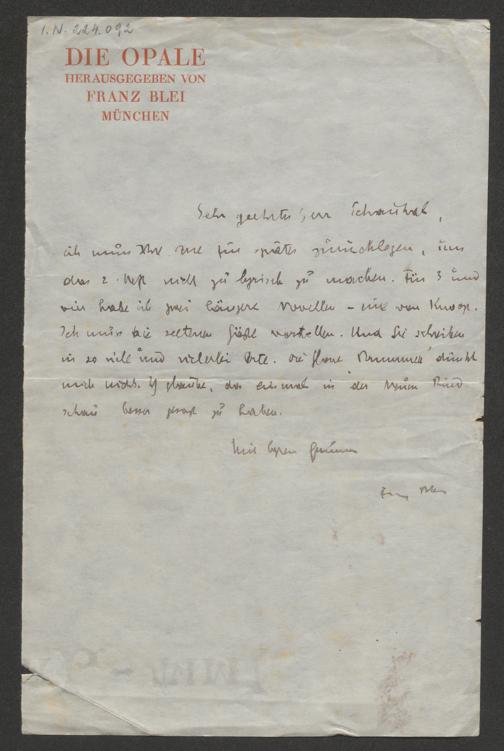 I.N. 224.092
DIE OPALE
HERAUSGEGEBEN VON
FRANZ BLEI
MÜNCHEN
Sehr geehrter Herr Schaukal,
ich muss Ihre für später zurücklegen, um
das 2. Heft nicht zu lyrisch zu machen. Für 3 und
vier habe ich zwei längere Novellen – eine von Knoop.
Ich muss die seltenen Gäste vorstellen. Und Sie schreiben
in so viele und vielerlei Orte. Die
mich nicht. Ich glaube, das einmal in der Neuen Rund
schau besser gesagt zu haben.
Mit besten Grüssen
Franz Blei